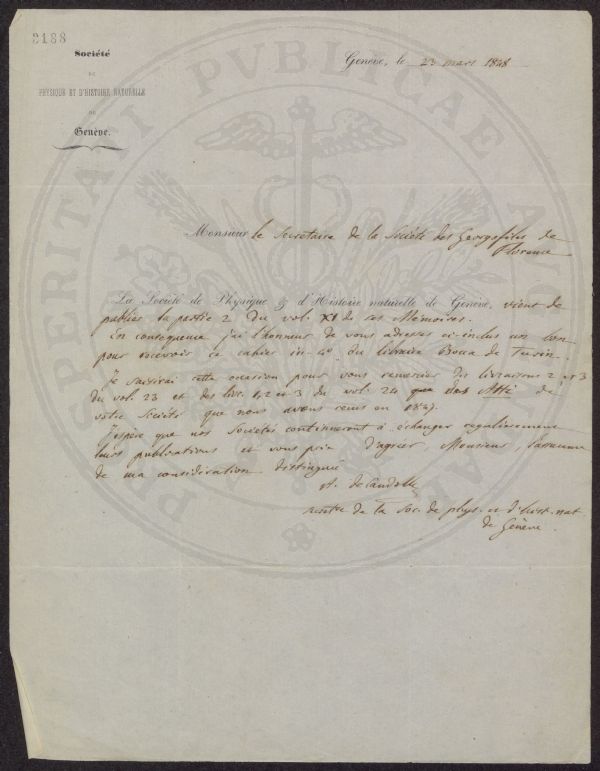 3188
Société
DE
PHYSIQUE ET D'HISTOIRE NATURELLE
DE
Genève.
PROSPERITATI PVBLICAE
Genève, le 23 mars 1848
Monsieur le Secrétaire de la Société des Georgofiles de
Florence
La Société de Physique & d'Histoire naturelle de Genève, vient de
publier la partie 2 du vol. XI de ses Mémoires.
En conséquence j'ai l'honneur de vous adresser ci-inclus un bon
pour recevoir ce cahier in-4º du libraire Bocca de Turin.
Je saisirai cette occasion pour vous remercier des livraisons 2 et 3
du vol. 23 et des livr. 1, 2 et 3 du vol. 24 des Atti de
votre Société que nous avons reçus en 1847.
J'espère que nos Sociétés continueront à échanger régulièrement
leurs publications et vous prie d'agréer, Monsieur, l'assurance
de ma considération distinguée
A. de Candolle
de la Soc. de phys. et d'hist. nat.
de Genève.